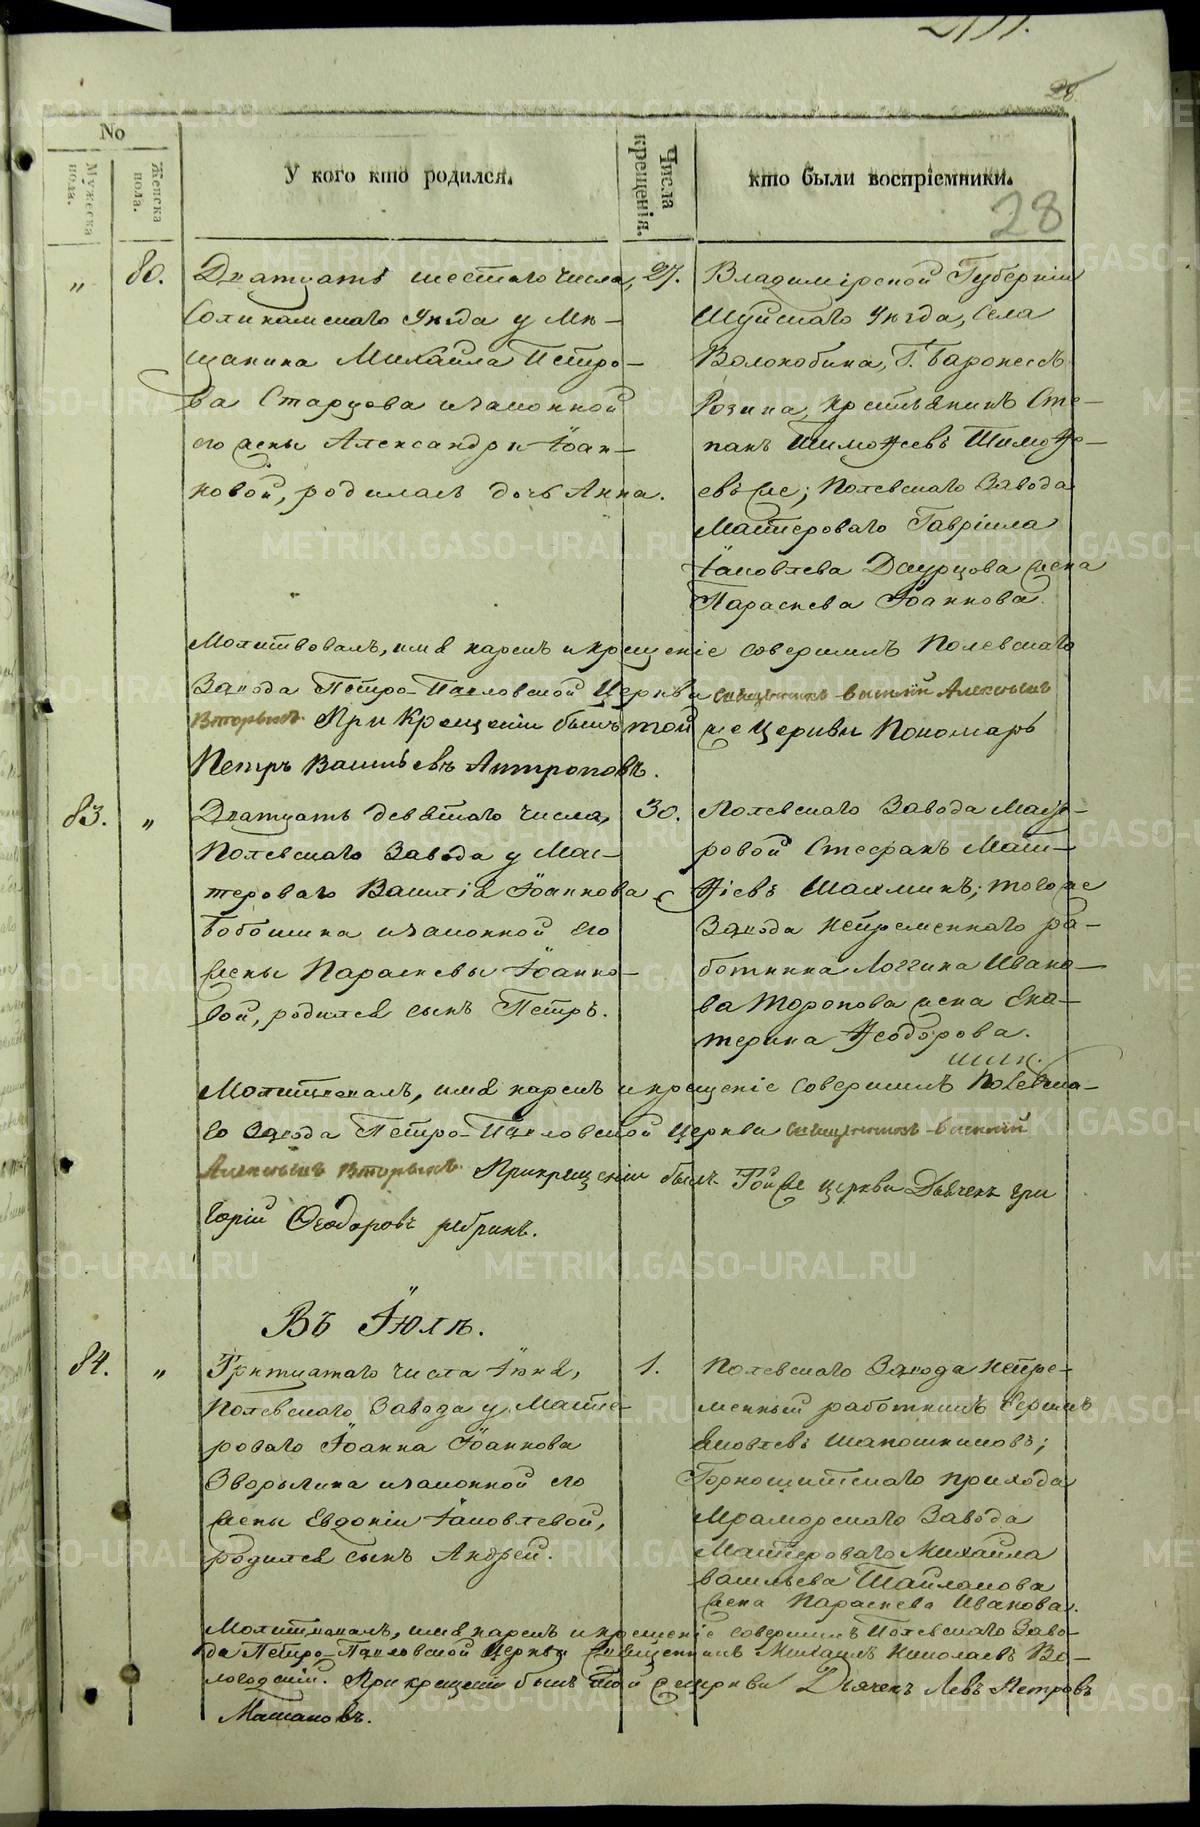 28
28
No
Мужеска пола.
Женска пола.
У кого кто родился.
Числа крещенія.
кто были воспріемники.
" 80. Двадцать шестаго числа, 27.
Соликамскаго Уѣзда у Мѣ-
щанина Михаила Петро-
ва Старцова и законной
его жены Александры Іоан-
новой, родилась дочь Анна.
Владимірской Губерніи
Шуйскаго Уѣзда, Села
Волокобина, Г. Баронессы
Розина, крестьянинъ Сте-
панъ Тимоѳеевъ Тимоѳе-
евъ же; Полевскаго Завода
Мастероваго Гавріила
Іаковлева Даурцова жена
Параскева Іоаннова.
Молитвовалъ, имя нарекъ и крещеніе совершилъ Полевскаго
Завода Петро-Павловской Церкви священникъ Василій Алексѣевъ
Вторыхъ. При Крещеніи былъ той же Церкви Пономарь
Петръ Васильевъ Антроповъ.
83. " Двадцать девятаго числа, 30.
Полевскаго Завода у Мас-
тероваго Василія Іоаннова
Бобошина и законной его
жены Параскевы Іоанно-
вой, родился сынъ Петръ.
Полевскаго Завода Масте-
ровой Стефанъ Мат-
ѳіевъ Шахминъ; того же
Завода непременнаго ра-
ботника Логгина Ивано-
ва Торопова жена Ека-
терина Ѳеодорова.
Молитвовалъ, имя нарекъ и крещеніе совершилъ Полевска-
го Завода Петро-Павловской Церкви священникъ Василій
Алексѣевъ Вторыхъ. При крещеніи былъ Той же церкви Дьячекъ Гри
горій Ѳеодоровъ
Въ Іюлѣ.
84. " Тритцатаго числа Іюня, 1.
Полевскаго Завода у Масте-
роваго Іоанна Іоаннова
Зворыгина и законной его
жены Евдокіи Іаковлевой,
родился сынъ Андрей.
Полевскаго Завода непре-
менный работникъ
Яковлевъ Шапошниковъ;
Горнощитскаго прихода
Мраморскаго Завода
Мастероваго Михаила
Васильева
жена Параскева Иванова.
Молитвовалъ, имя нарекъ и крещеніе совершилъ Полевскаго Заво-
да Петро-Павловской Церкви Священникъ Михаилъ Николаевъ Во-
логодскій. При крещеніи былъ той же церкви Дьячекъ Левъ Петровъ
METRIKI.GASO-URAL.RU